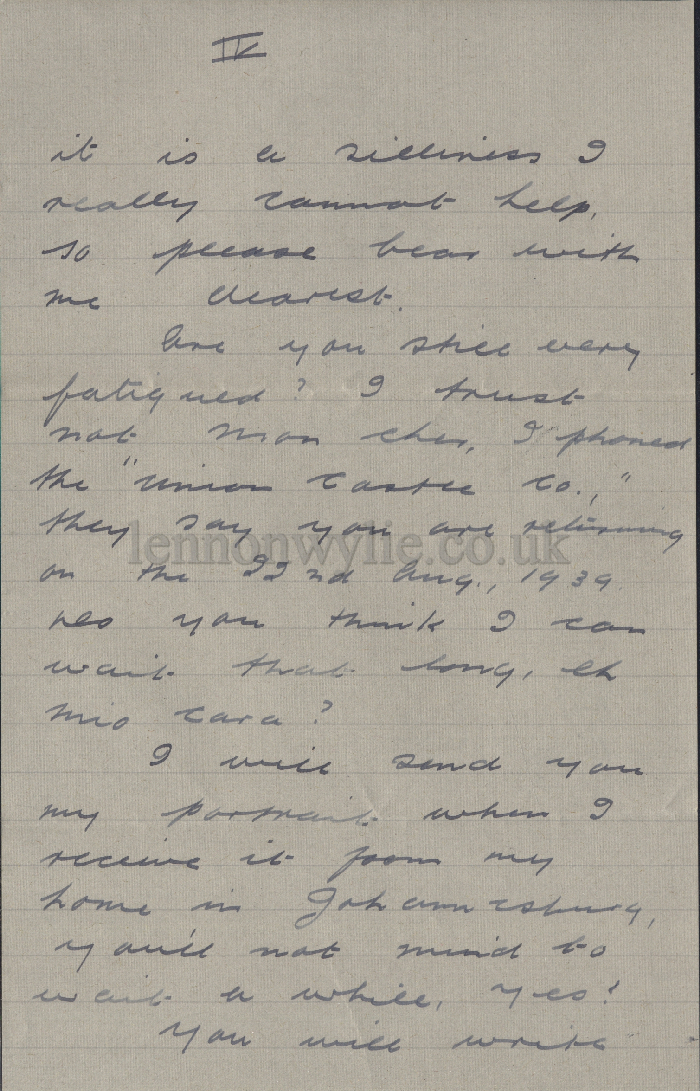 IV
it is a silliness I
really cannot help,
so please bear with
me dearest.
Are you still very
fatigued? I trust
not mon cher, I phoned
the "Union Castle Co.,"
they say you are returning
lennonwylie.co.uk
on the 22nd Aug., 1939
you think I can
wait that long, eh
mio cara?
I will send you
my portrait when I
receive it from my
home in Johannesburg,
you'll not mind to
wait a while, yes?
You will write